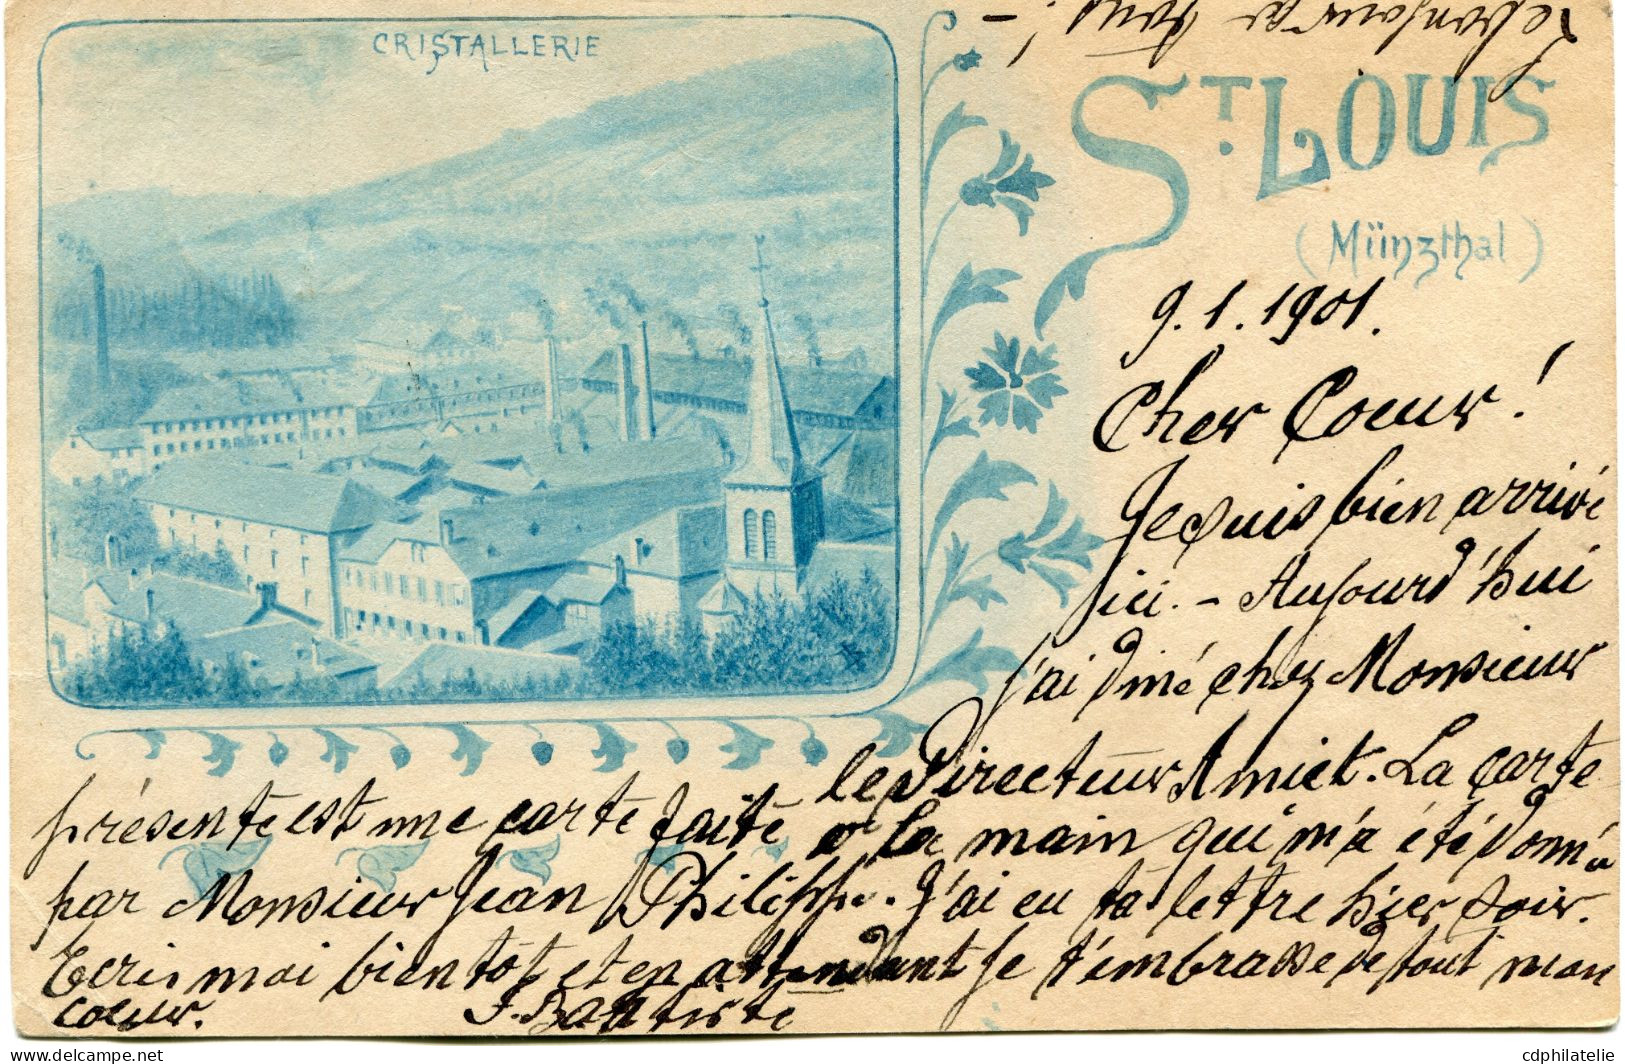 CRISTALLERIE
le bonjour de tous! -
ST. LOUIS
(Münzthal)
9.1.1901.
Cher Coeur!
Je suis bien arrivé
ici. - Aujourd'hui
j'ai diné chez Monsieur
le Directeur Amiet. La carte
présente est une carte faite a la main qui m'a été donné
par Monsieur Jean Philippe. J'ai eu ta lettre hier soir.
Ecris moi bientôt et en attendant je t'embrasse de tout mon
coeur. J. Baptiste
delcampe.net
cdphilatelie